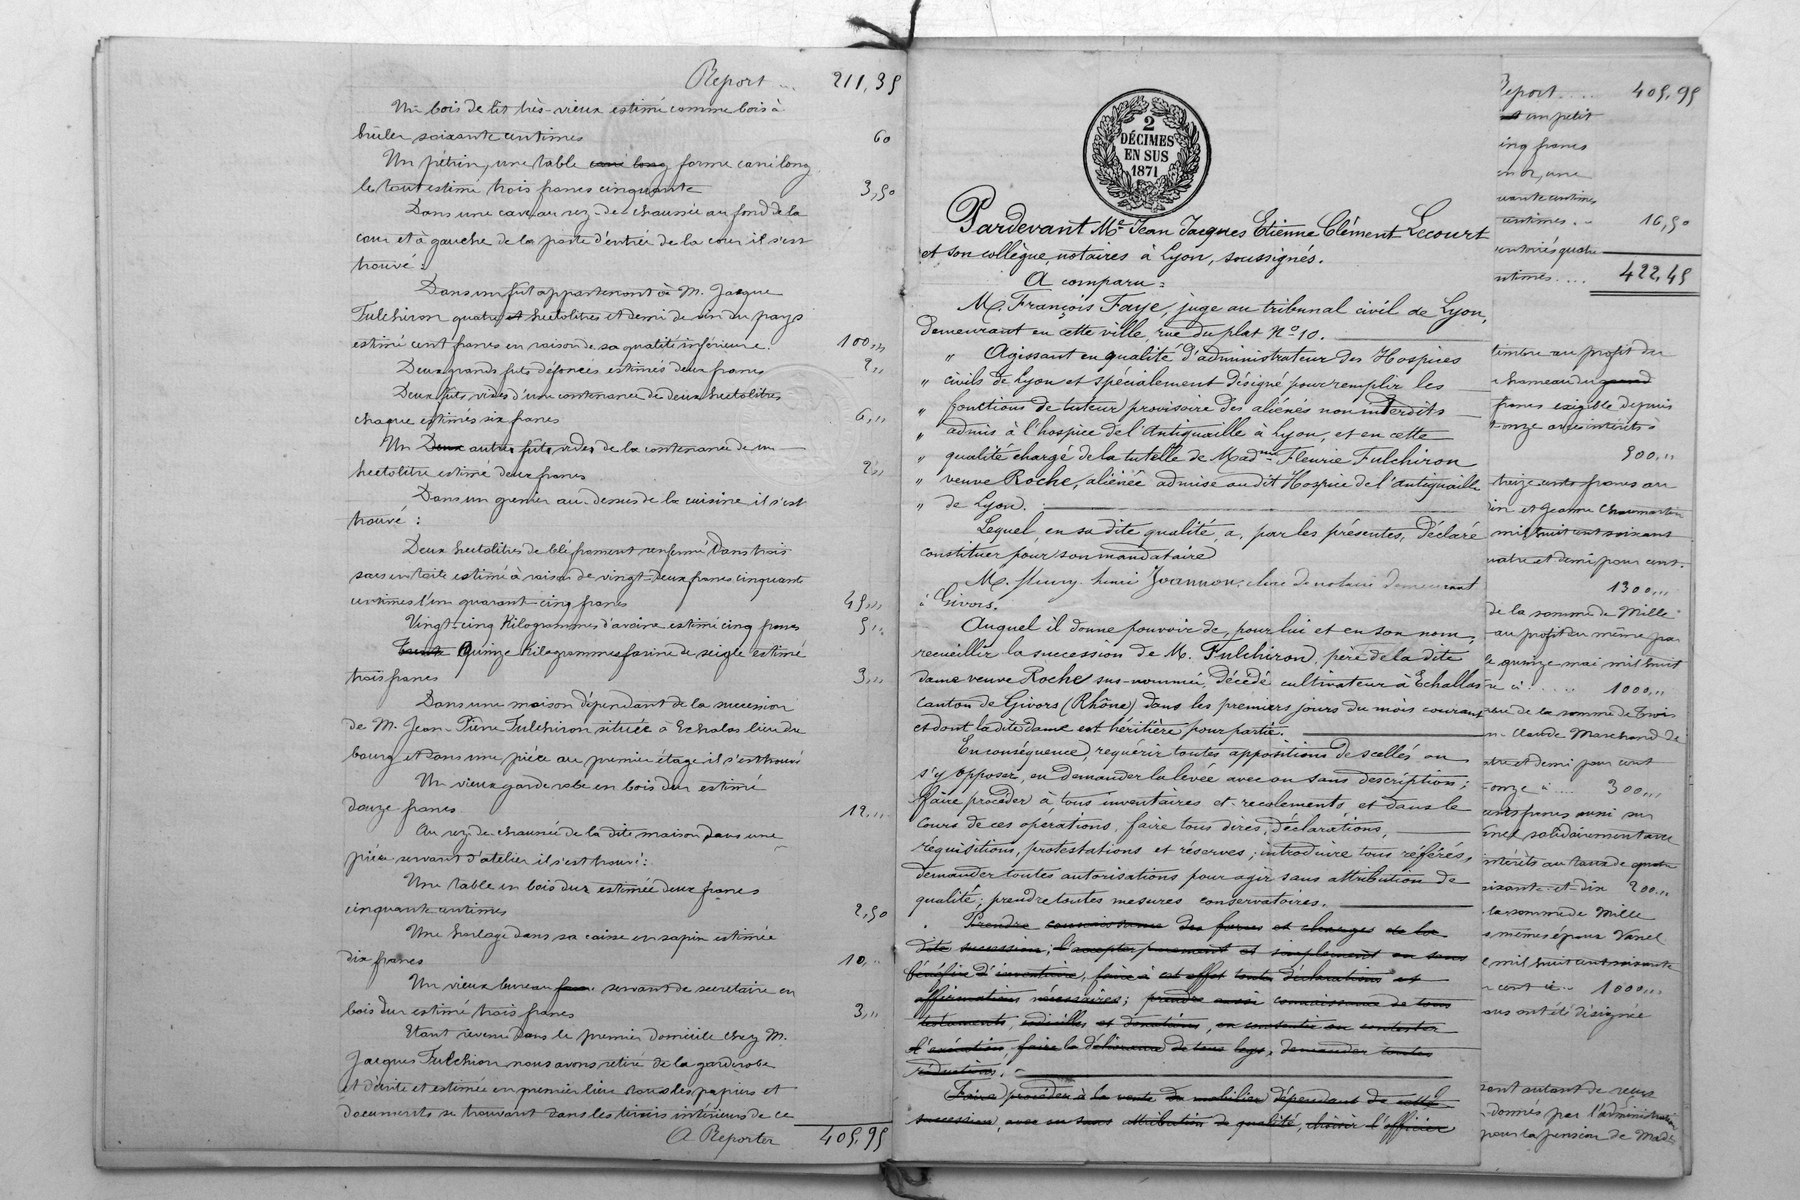 Report ... 211,35
Un bois de lit très-vieux estimé comme bois à
brûler soixante centimes 60
Un pétrin, une table carré long forme carré long
le tout estimé trois francs cinquante 3,50
Dans une cave au rez-de-chaussée au fond de la
cour et à gauche de la porte d'entrée de la cour il s'est
trouvé :
Dans un fut appartenant à M. Jacque
Fulchiron quatre et hectolitres et demi de vin du pays
estimé cent francs en raison de sa qualité inférieure. 100,,
Deux grands futs défoncés estimés deux francs 2,,
Deux futs vides d'une contenance de deux hectolitres
chaque estimés six francs 6,,
Un Deux autres futs vides de la contenance de un
hectolitre estimé deux francs 2,,
Dans un grenier au-dessus de la cuisine il s'est
trouvé :
Deux hectolitres de blé froment renfermé dans trois
sacs en toile estimé à raison de vingt-deux francs cinquante
centimes l'un quarant-cinq francs 45,,
Vingt-cinq Kilogrammes d'avoine estimé cinq francs 5,,
Trente Quinze Kilogrammes farine de seigle estimé
trois francs 3,,
Dans une maison dépendant de la succession
de M. Jean-Pierre Fulchiron située à Echalas lieu du
bourg et dans une pièce au premier étage il s'est trouvé
Un vieux garderobe en bois dur estimé
douze francs 12,,
Au rez-de-chaussée de la dite maison dans une
pièce servant d'atelier il s'est trouvé :
Une table en bois dur estimée deux francs
cinquante centimes 2,50
Une horloge dans sa caisse en sapin estimée
dix francs 10,,
Un vieux bureau servant de secretaire en
bois dur estimé trois francs 3,,
Etant revenu dans le premier domicile chez M.
Jacques Fulchiron nous avons retiré de la garderobe
et décrite et estimée en premier lieu tous les papiers et
documents se trouvant dans les tiroirs intérieurs de ce
A Reporter 405,95
2
DÉCIMES
EN SUS
1871
Pardevant Me Jean Jacques Etienne Clément Lecourt
et son collègue, notaires à Lyon, soussignés.
A comparu :
M. François Faye, juge au tribunal civil de Lyon,
demeurant en cette ville, rue du plat No 10.
" Agissant en qualité d'administrateur des Hospices
" civils de Lyon et spécialement désigné pour remplir les
" fonctions de tuteur provisoire des aliénés non interdits
" admis à l'hospice de l'Antiquaille à Lyon, et en cette
" qualité chargé de la tutelle de Madme Fleurie Fulchiron
" veuve Roche, aliénée admise audit Hospice de l'Antiquaille
" de Lyon.
Lequel, en sa dite qualité, a, par les présentes, déclaré
constituer pour son mandataire
M. Fleury-henri Joannon, clerc de notaire demeurant
à Givors.
Auquel il donne pouvoir de, pour lui et en son nom,
recueillir la succession de M. Fulchiron, père de la dite
dame veuve Roche sus-nommée, décédé cultivateur à Echallas
canton de Givors (Rhône) dans les premiers jours du mois courant
et dont la dite dame est héritière pour partie.
En conséquence, requérir toutes appositions de scellés ou
s'y opposer, en demander la levée avec ou sans description ;
faire procéder à tous inventaires et recolements et dans le
cours de ces opérations, faire tous dires, déclarations,
réquisitions, protestations et réserves ; introduire tous référés,
demander toutes autorisations pour agir sans attribution de
qualité ; prendre toutes mesures conservatoires.
Prendre connaissance des forces et charges de la
dite succession ; l'accepter purement et simplement ou sous
bénéfice d'inventaire, faire à cet effet toutes déclarations et
affirmations nécessaires ; prendre aussi connaissance de tous
testaments, codicilles et donations, en consentir ou contester
l'exécution, faire la délivrance de tous legs, demander toutes
réductions.
Faire procéder à la vente du mobilier dépendant de cette
succession, avec ou sans attribution de qualité, choisir l'officier
Report .... 405,95
un petit
cinq francs
une
centimes .. 16,50
422,45
timbre au profit du
francs exigible depuis
onze avec intérêts
900,,
treize cents francs au
in et Jeanne Chaumartin
mil huit cent soixant
quatre et demi pour cent.
1300,,
de la somme de Mille
au profit du même pa
le quinze mai mil huit
1000,,
de la somme de trois
Claude Marchand de
et demi pour cent
onze à ... 300,,
cents francs aussi sur
Vanel solidairement avec
intérêts au taux de quatre
soixante-et-dix 200,,
la somme de Mille
mêmes époux Vanel
mil huit cent soixante
cent à .. 1000,,
ous ont été désignée
sont autant de reçus
donnés par l'administration
pour la pension de Made